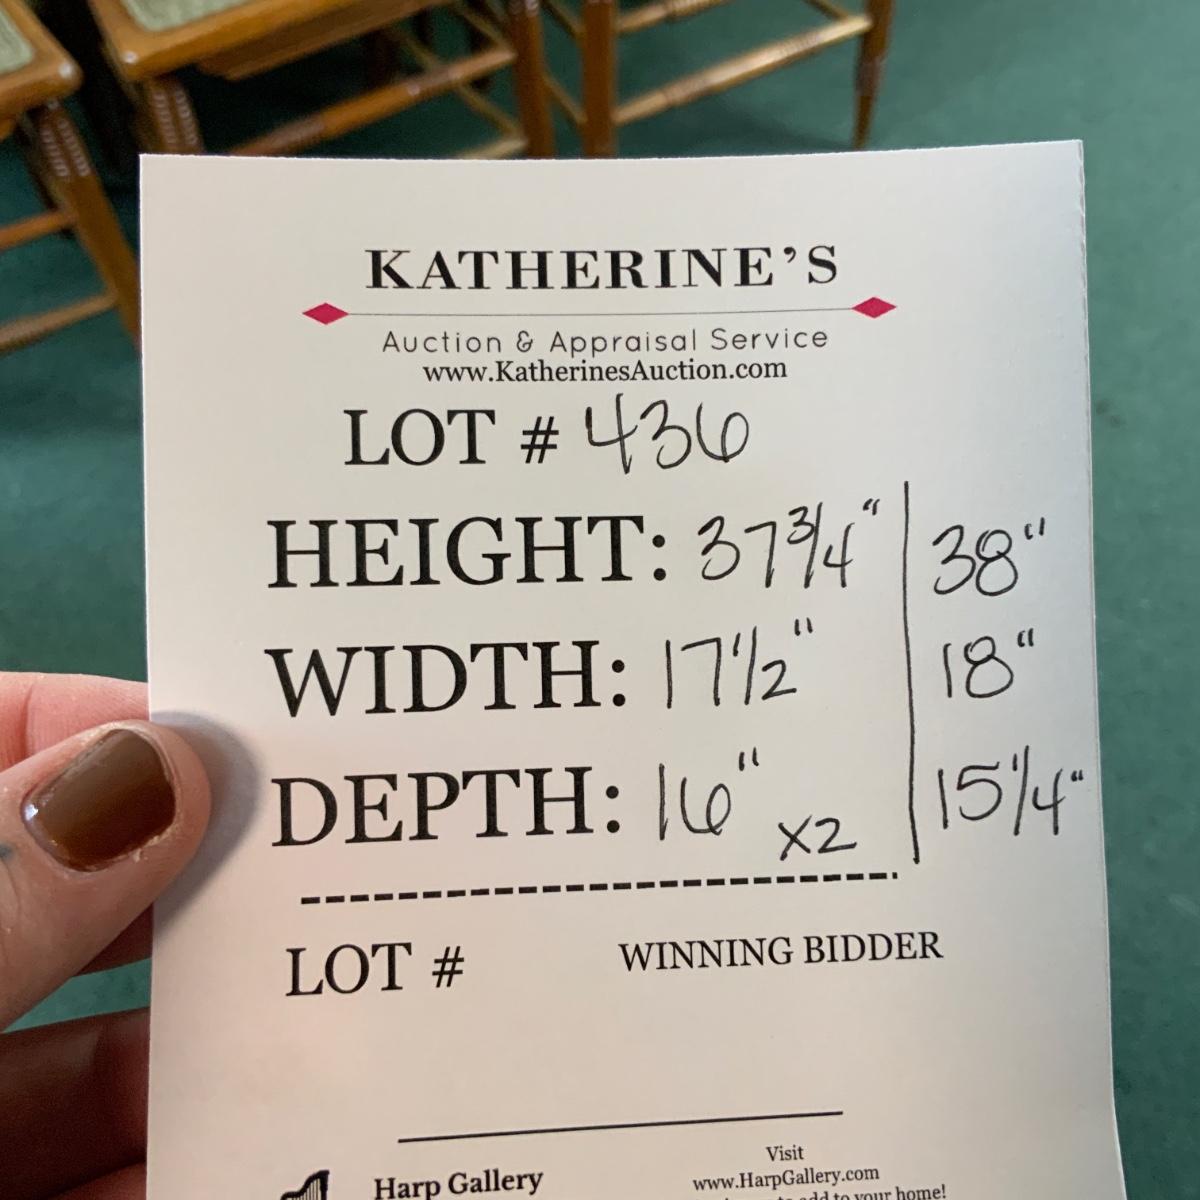 KATHERINE'S
Auction & Appraisal Service
www.KatherinesAuction.com
LOT # 436
HEIGHT: 37 3/4" | 38"
WIDTH: 17 1/2" | 18"
DEPTH: 16" x2 | 15 1/4"
LOT # WINNING BIDDER
Harp Gallery
Visit
www.HarpGallery.com
to add to your home!